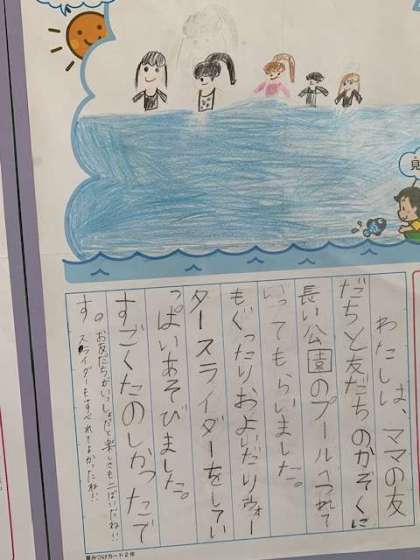 見
わたしは、ママの友
だちと友だちのかぞくに
長い公園のプールへつれて
いってもらいました。
もぐったりおよいだりウォー
タースライダーをしてい
っぱいあそびました。
すごくたのしかったで
す。
お友だちがいっしょだと楽しさも二ばいだね!!
スライダーもすべれてよかったね!!
みつけカード2年